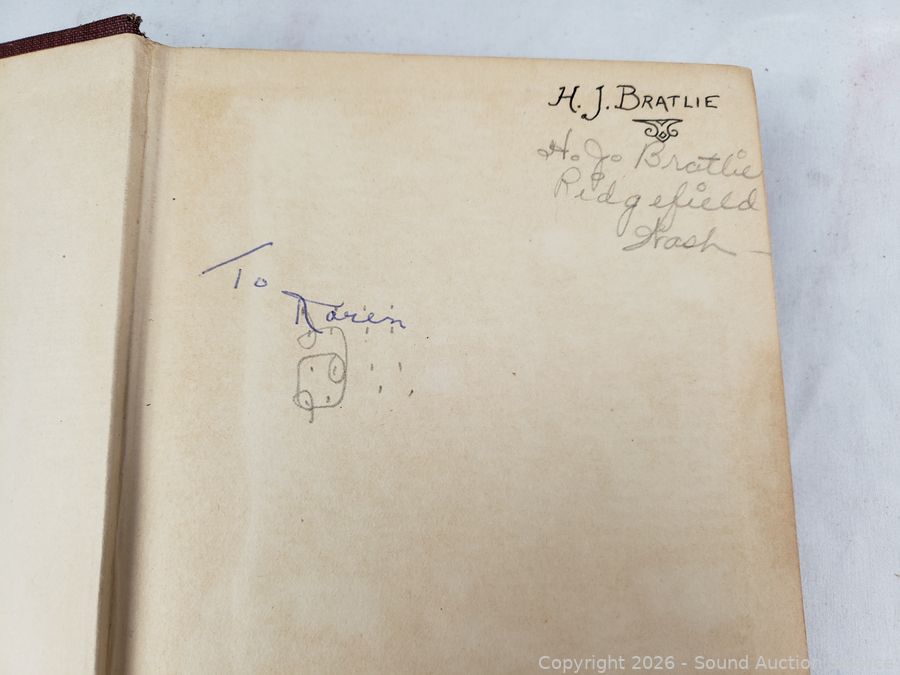 H. J. BRATLIE
H. J. Bratlie
Ridgefield
Wash
To
Karen
Copyright 2026 - Sound Auction Service